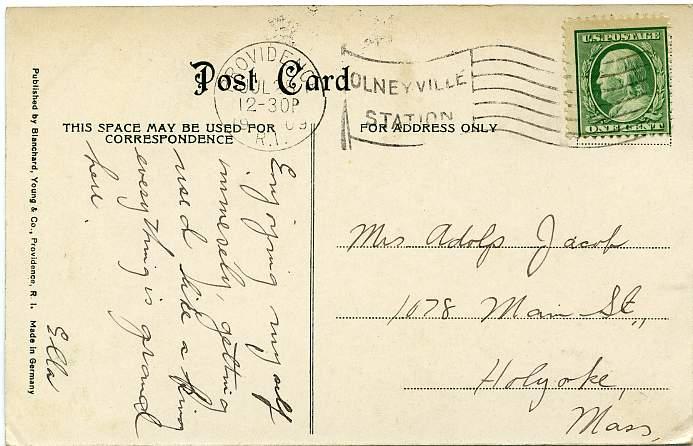 Post Card
PROVIDENCE
JUL
12-30P
1909
R.I.
OLNEYVILLE
STATION
U.S. POSTAGE
ONE CENT
THIS SPACE MAY BE USED FOR
CORRESPONDENCE
FOR ADDRESS ONLY
Published by Blanchard, Young & Co., Providence, R. I. Made in Germany
Enjoying myself
immensely, getting
used like a king
everything is grand
here.
Ella
Mrs Adolp Jacob
1078 Main St.,
Holyoke,
Mass